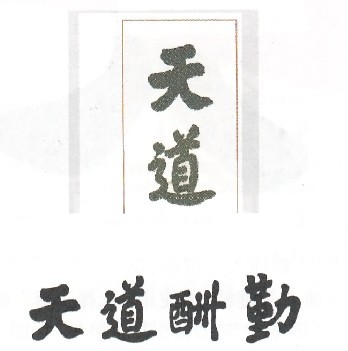 天道
天道酬勤